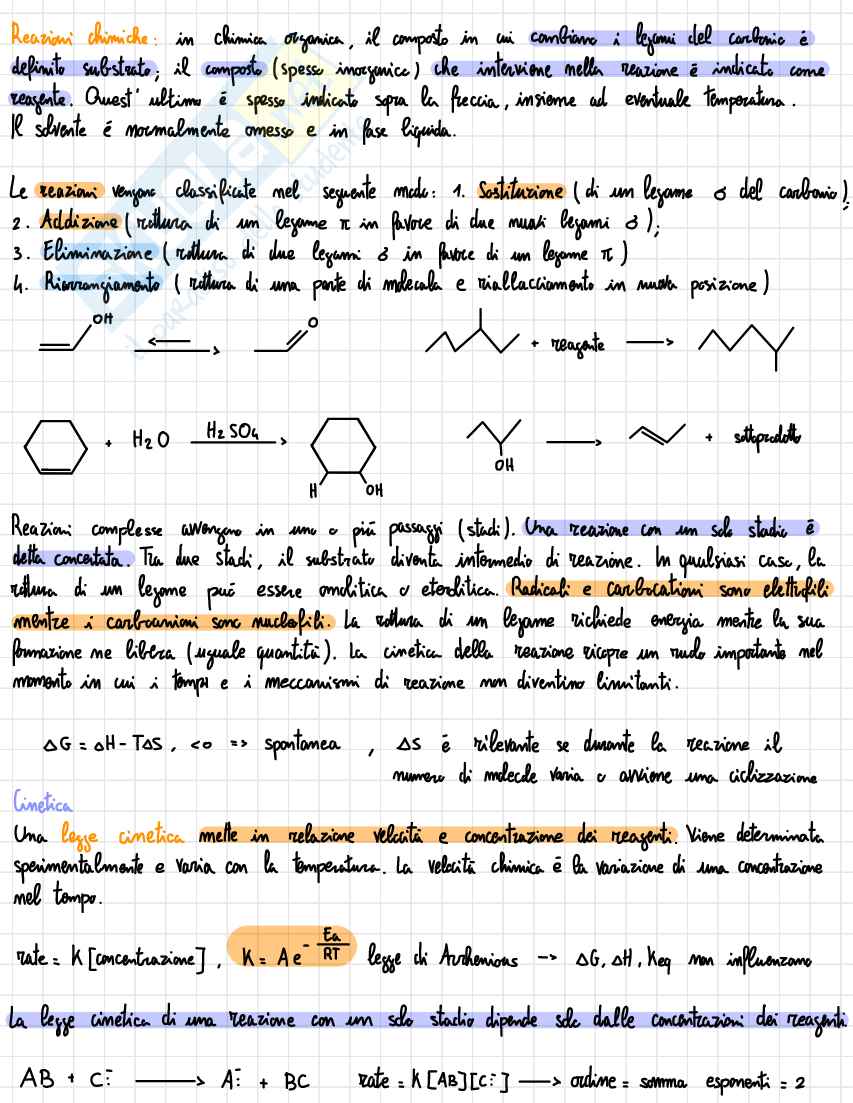 Reazioni chimiche: in chimica organica, il composto in cui cambiano i legami del carbonio è
definito substrato; il composto (spesso inorganico) che interviene nella reazione è indicato come
reagente. Quest'ultimo è spesso indicato sopra la freccia, insieme ad eventuale temperatura.
Il solvente è normalmente omesso e in fase liquida.
Le reazioni vengono classificate nel seguente modo: 1. Sostituzione (di un legame σ del carbonio);
2. Addizione (rottura di un legame π in favore di due nuovi legami σ);
3. Eliminazione (rottura di due legami σ in favore di un legame π)
4. Riarrangiamento (rottura di una parte di molecola e riallacciamento in nuova posizione)
OH O
+ reagente
+ H2O H2SO4 H OH
OH + sottoprodotto
Reazioni complesse avvengono in uno o più passaggi (stadi). Una reazione con un solo stadio è
detta concertata. Tra due stadi, il substrato diventa intermedio di reazione. In qualsiasi caso, la
rottura di un legame può essere omolitica o eterolitica. Radicali e carbocationi sono elettrofili
mentre i carboanioni sono nucleofili. La rottura di un legame richiede energia mentre la sua
formazione ne libera (uguale quantità). La cinetica della reazione ricopre un ruolo importante nel
momento in cui i tempi e i meccanismi di reazione non diventino limitanti.
ΔG = ΔH - TΔS, <0 => spontanea , ΔS è rilevante se durante la reazione il
numero di molecole varia o avviene una ciclizzazione
Cinetica
Una legge cinetica mette in relazione velocità e concentrazione dei reagenti. Viene determinata
sperimentalmente e varia con la temperatura. La velocità chimica è la variazione di una concentrazione
nel tempo.
rate = K [concentrazione], K = A e^(-Ea/RT) legge di Arrhenious -> ΔG, ΔH, Keq non influenzano
La legge cinetica di una reazione con un solo stadio dipende solo dalle concentrazioni dei reagenti
AB + C:⁻ → A:⁻ + BC rate = K [AB][C:⁻] → ordine = somma esponenti = 2